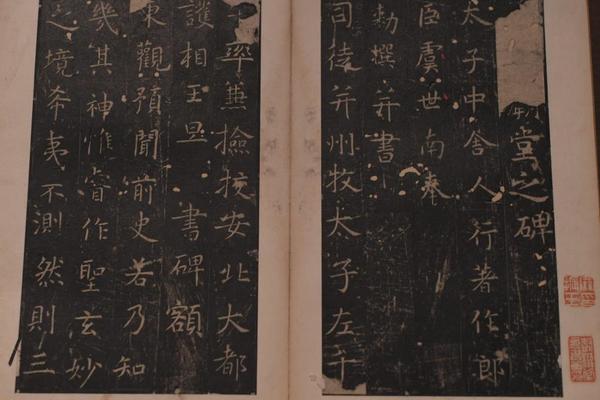 堂之碑
太子中舍人行著作郎
臣虞世南奉
勅撰并書
司徒并州牧太子左千
率兼檢挍安北大都
護相王旦書碑額
東觀預聞前史若乃知
幾其神惟睿作聖玄妙
之境希夷不測然則三